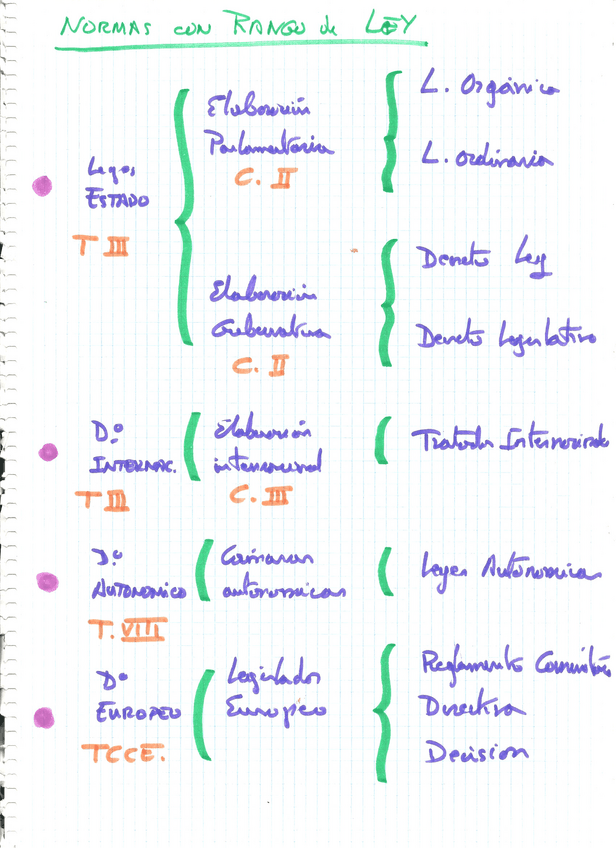 NORMAS CON RANGO de LEY
Leyes
ESTADO
T III
Elaboración
Parlamentaria
C. II
L. Orgánica
L. ordinaria
Elaboración
Gubernativa
C. II
Decreto Ley
Decreto Legislativo
D.º
INTERNAC.
T III
Elaboración
internacional
C. III
Tratados Internacionales
D.º
AUTONOMICO
T. VIII
Camaras
autonomicas
Leyes Autonomicas
Dº
EUROPEO
TCCE.
Legislador
Europeo
Reglamento Comunitario
Directiva
Decisión